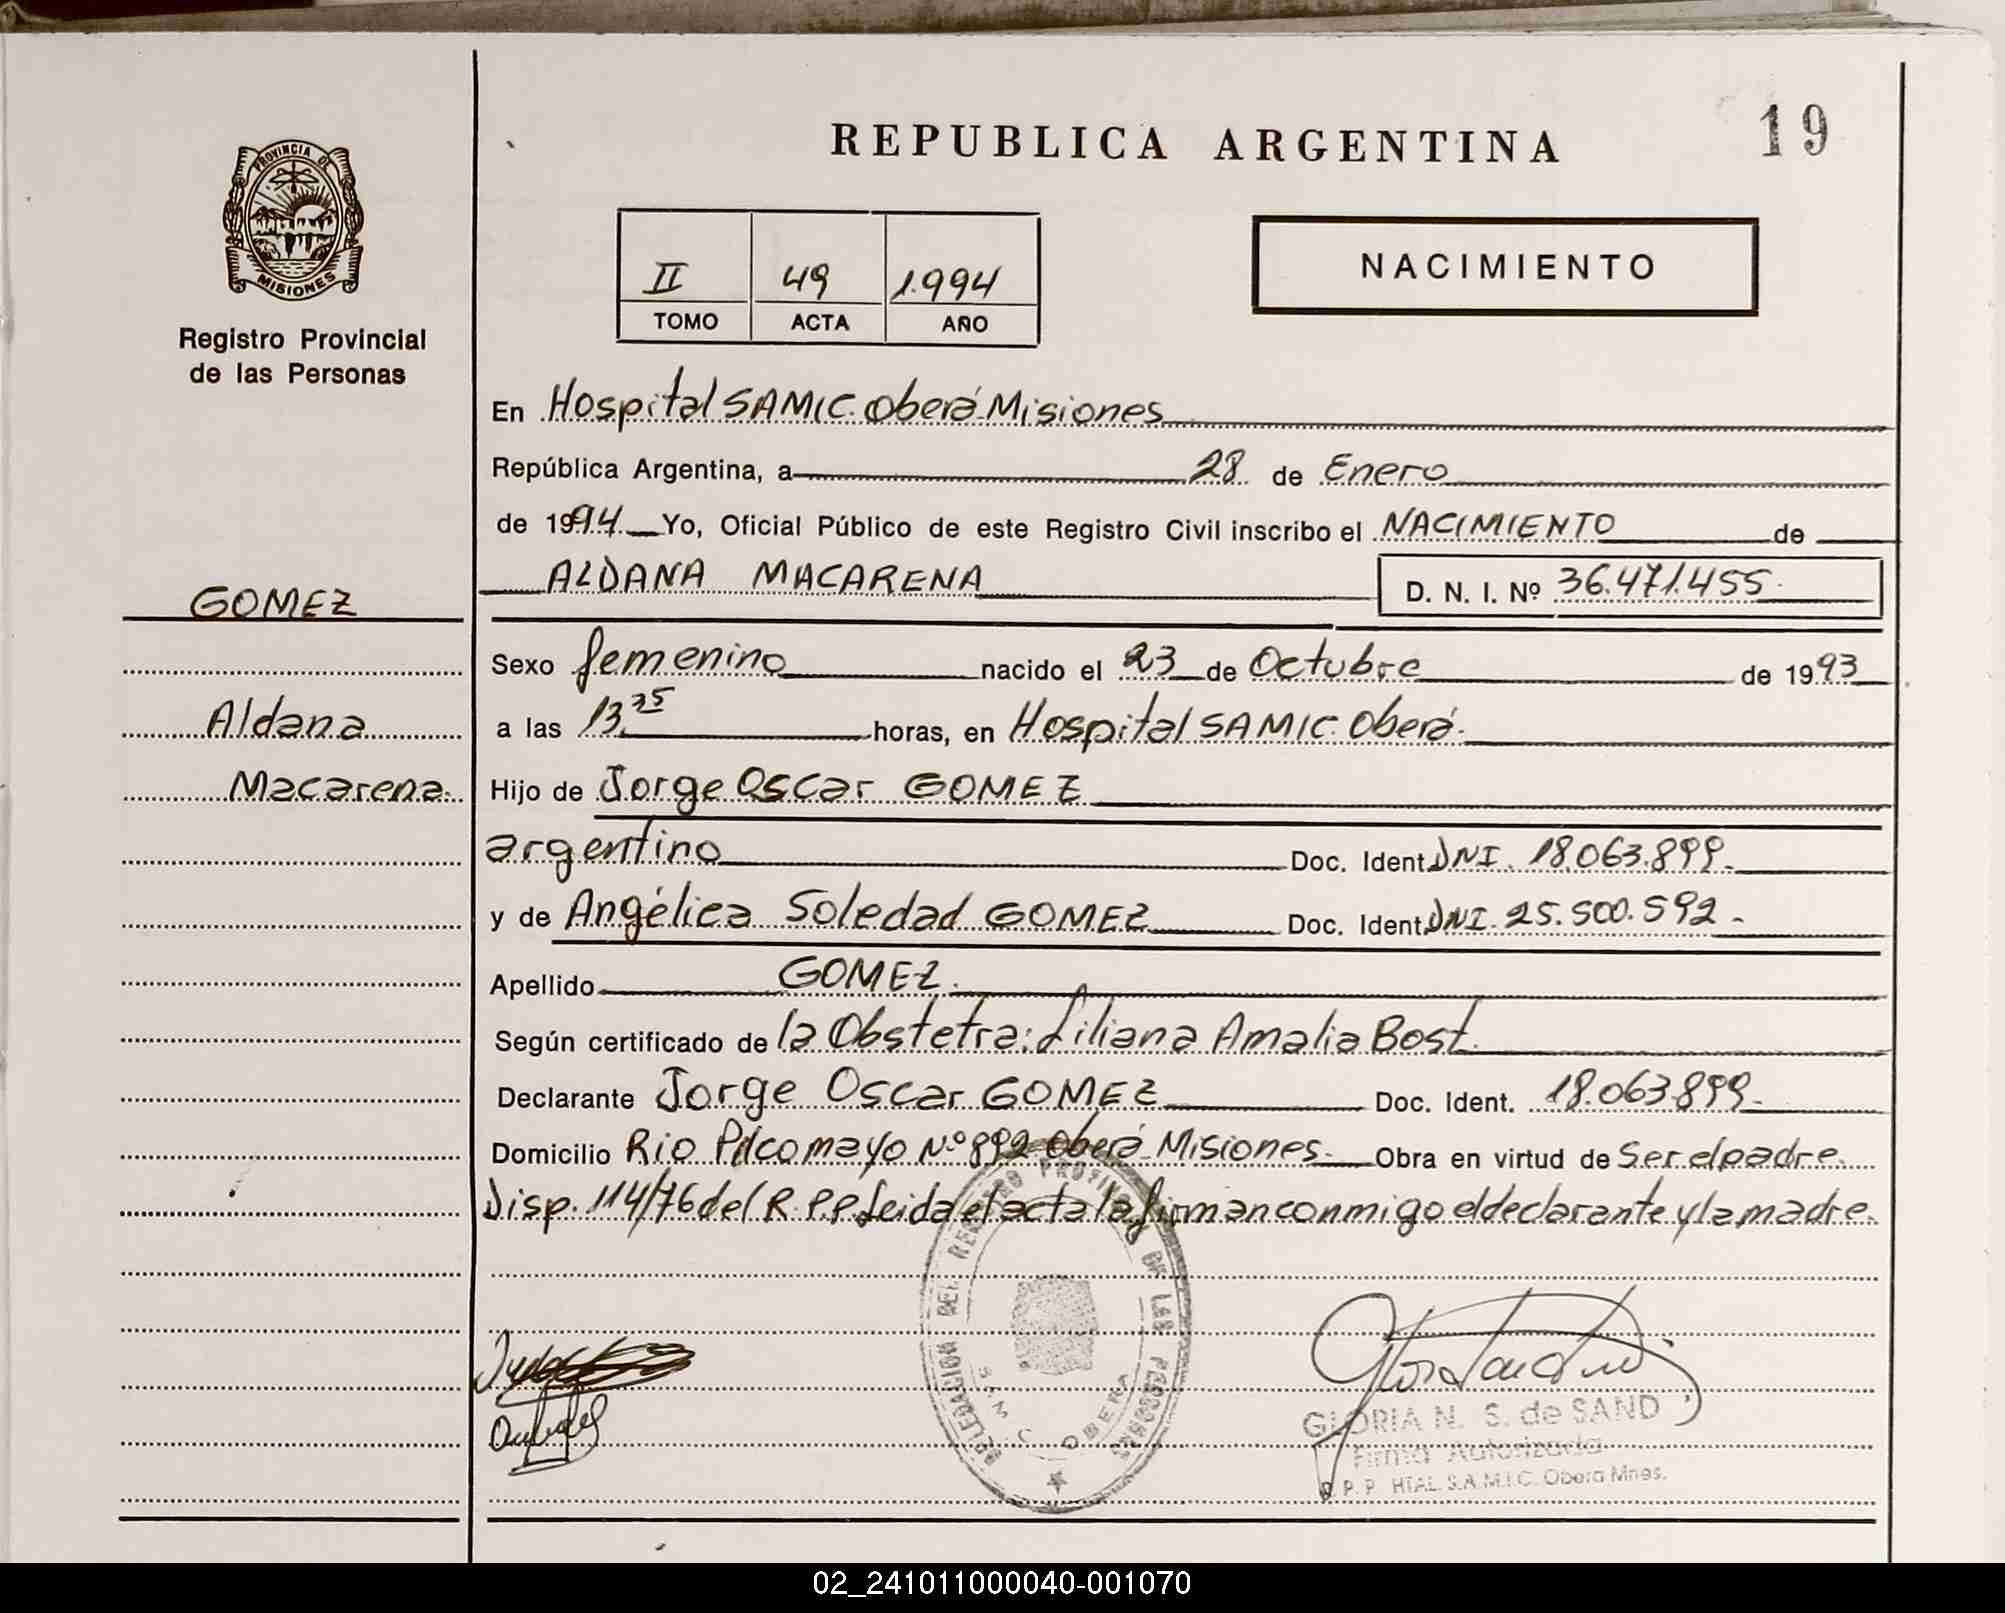 REPUBLICA ARGENTINA
19
PROVINCIA DE
MISIONES
Registro Provincial
de las Personas
II 49 1.994
TOMO ACTA AÑO
NACIMIENTO
En Hospital SAMIC. Oberá-Misiones
República Argentina, a 28 de Enero
de 1994. Yo, Oficial Público de este Registro Civil inscribo el NACIMIENTO de
ALDANA MACARENA D. N. I. Nº 36.471.455
GOMEZ
Aldana
Macarena.
Sexo femenino nacido el 23 de Octubre de 1993
a las 13,35 horas, en Hospital SAMIC. Oberá.
Hijo de Jorge Oscar GOMEZ
argentino Doc. Ident. DNI. 18.063.899.
y de Angélica Soledad GOMEZ Doc. Ident. DNI. 25.500.592.-
Apellido GOMEZ.
Según certificado de la Obstetra: Liliana Amalia Bost.
Declarante Jorge Oscar GOMEZ Doc. Ident. 18.063.899.
Domicilio Rio Pilcomayo Nº 892 Oberá-Misiones. Obra en virtud de Ser el padre.
Disp. 114/76 del R.P.P. Leida el acta la firman conmigo el declarante y la madre.
DELEGACION DEL REGISTRO PROVINCIAL DE LAS PERSONAS
SAMIC OBERA
GLORIA N. S. de SAND
Firma Autorizada
R. P. P. HTAL. S.A.M.I.C. Oberá Mnes.
02_241011000040-001070